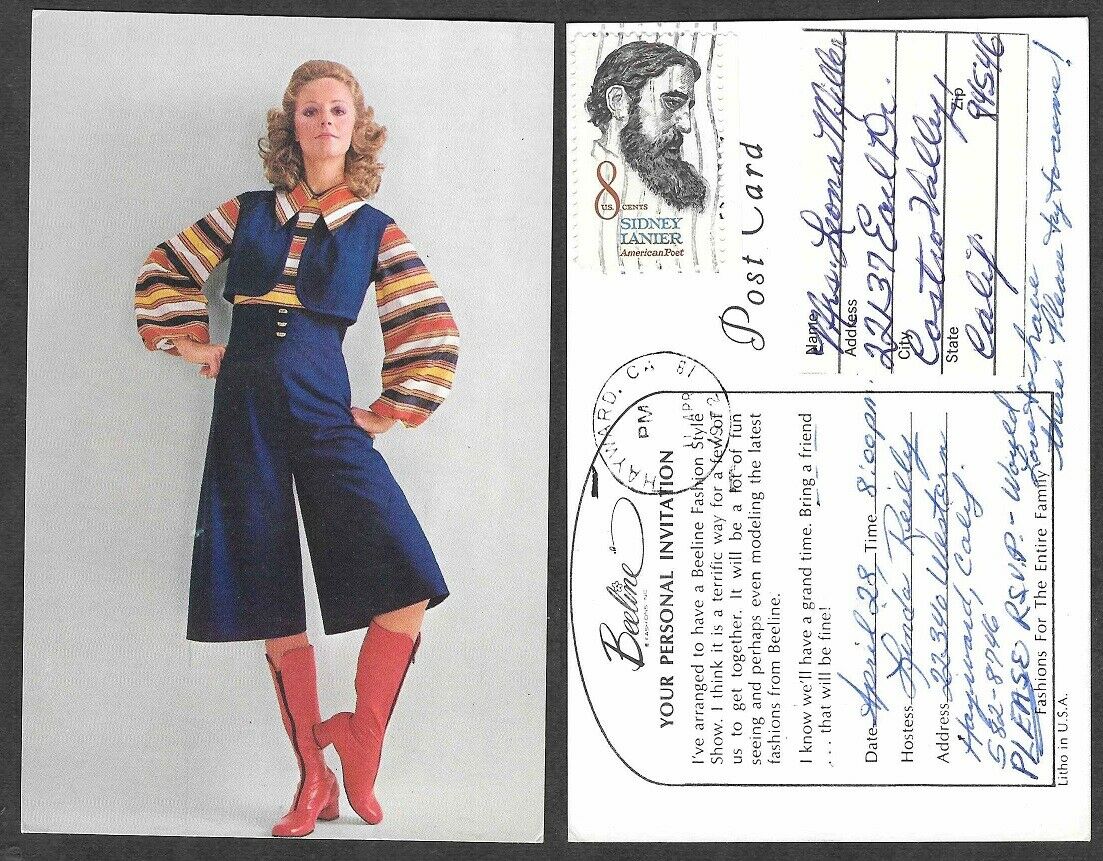 8
U.S. CENTS
SIDNEY
LANIER
American Poet
Post Card
HAYWARD, CA
PM
APR
Name Mrs. Leona Miller
Address
22137 Earl Dr.
City
Castro Valley,
State
Calif. Zip 94546
Beeline
FASHIONS INC.
YOUR PERSONAL INVITATION
I've arranged to have a Beeline Fashion Style
Show. I think it is a terrific way for a few of
us to get together. It will be a lot of fun
seeing and perhaps even modeling the latest
fashions from Beeline.
I know we'll have a grand time. Bring a friend
... that will be fine!
Date April 28 Time 8:00 pm.
Hostess Lynda Reilly
Address 22346 Western
Hayward, Calif.
582-8746
PLEASE RSVP - Would
love to have
you there. Please try to come!
Fashions For The Entire Family
Litho in U.S.A.